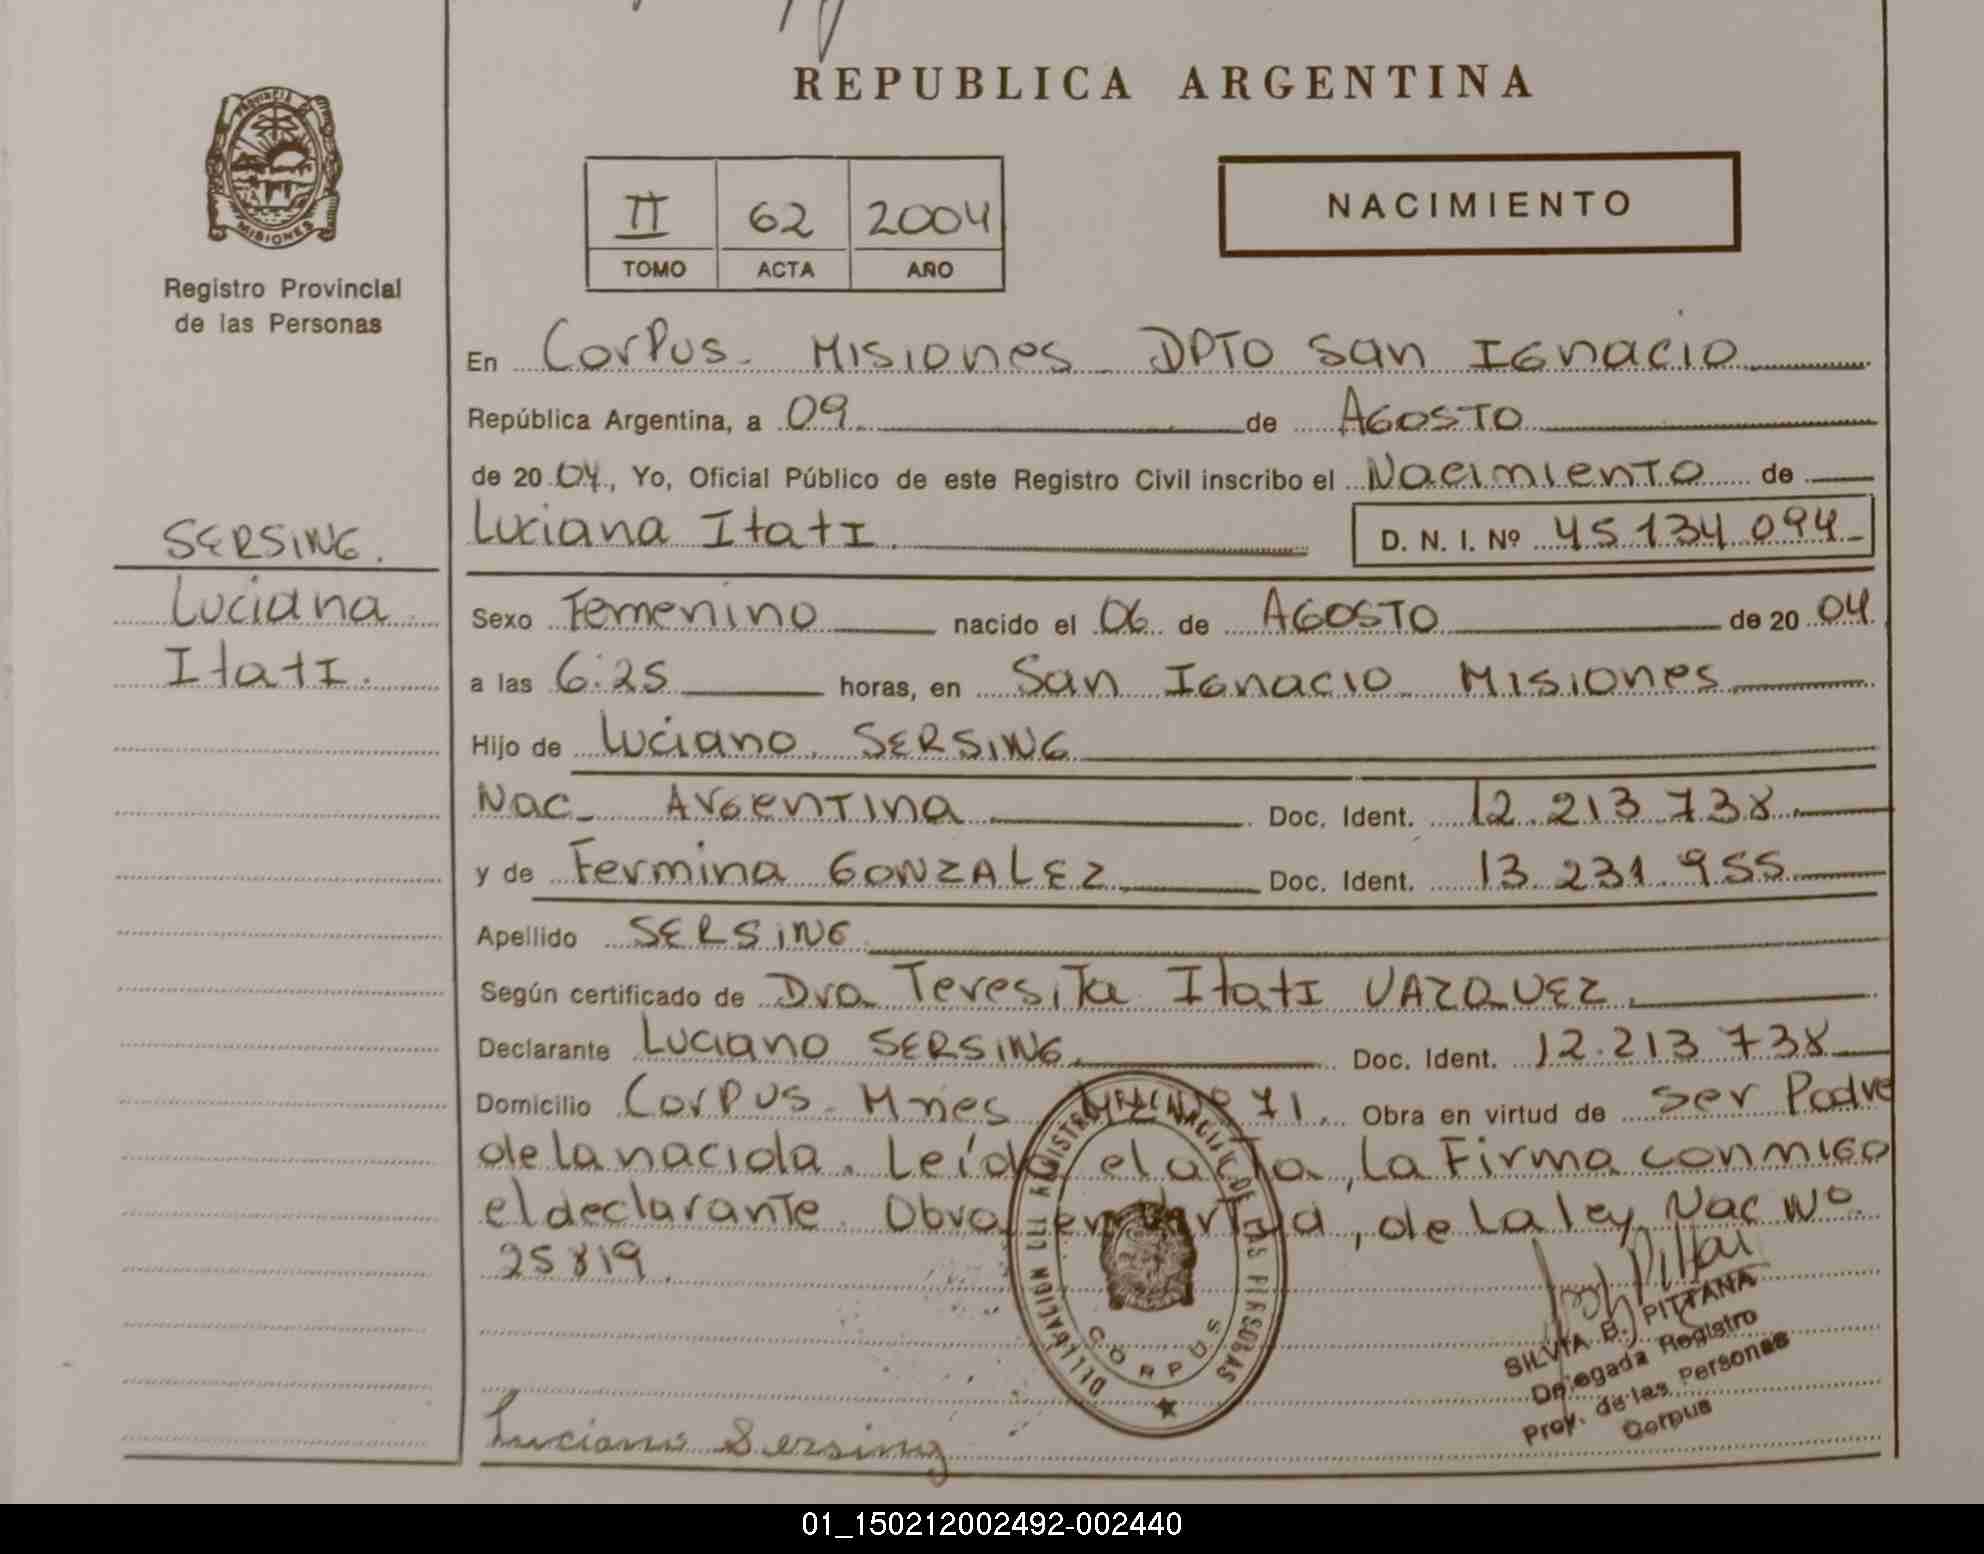 REPUBLICA ARGENTINA
PROVINCIA
MISIONES
Registro Provincial
de las Personas
II 62 2004
TOMO ACTA AÑO
NACIMIENTO
En Corpus - Misiones - DPTO San Ignacio
República Argentina, a 09 de Agosto
de 20 04, Yo, Oficial Público de este Registro Civil inscribo el Nacimiento de
Luciana Itati. D. N. I. Nº 45 134 094
SERSING.
Luciana
Itati.
Sexo Femenino nacido el 06 de AGOSTO de 20 04
a las 6:25 horas, en San Ignacio Misiones
Hijo de Luciano SERSING
Nac- Argentina Doc. Ident. 12.213 738
y de Fermina GONZALEZ Doc. Ident. 13.231.955
Apellido SERSING
Según certificado de Dra Teresita Itati VAZQUEZ
Declarante Luciano SERSING Doc. Ident. 12.213 738
Domicilio Corpus - Mnes 71. Obra en virtud de Ser Padre
de la nacida. Leída el acta, la Firma conmigo
el declarante. Obra en virtud, de la ley Nac Nº
25819
CORPUS
SILVIA B. PITTANA
Delegada Registro
Prov. de las Personas
Corpus
Luciano Sersing
01_150212002492-002440